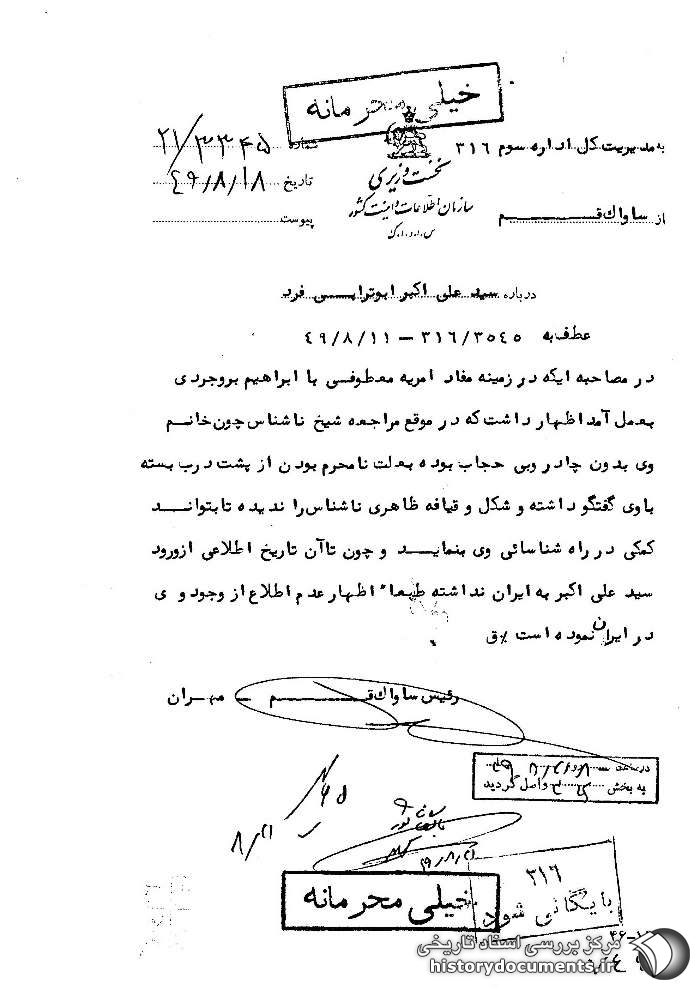 خیلی محرمانه
به مدیریت کل اداره سوم ۳۱۶
شماره ۲۱/۳۳۴۵
نخست وزیری
تاریخ ۴۹/۸/۱۸
سازمان اطلاعات و امنیت کشور
از ساواک قم
س.ا.و.ا.ک
پیوست
درباره سید علی اکبر ابوترابی فرد
عطف به ۳۱۶/۳۵٤۵ – ٤۹/۸/۱۱
در مصاحبه ایکه در زمینه مفاد امریه معطوفی با ابراهیم بروجردی
بعمل آمد اظهار داشت که در موقع مراجعه شیخ ناشناس چون خانم
وی بدون چادر وبی حجاب بوده بعلت نامحرم بودن از پشت درب بسته
باوی گفتگو داشته و شکل و قیافه ظاهری ناشناس را ندیده تا بتواند
کمکی در راه شناسائی وی بنماید و چون تاآن تاریخ اطلاعی ازورود
سید علی اکبر به ایران نداشته طبعاً اظهار عدم اطلاع از وجود وی
در ایران نموده است ٪ق
رئیس ساواک قم – مهران
به بخش واصل گردید
۸/۲۱
۴۹/۸/۲۱
۳۱۶
بایگانی شود
خیلی محرمانه
مرکز بررسی اسناد تاریخی
historydocuments.ir